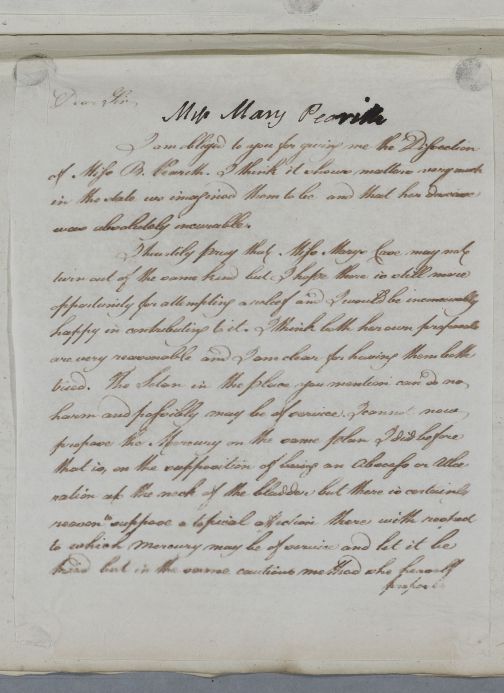 Dear Sir,
Miss Mary Pearith
I am obliged to you for giving me the Dissection
of Miss B. Peareth. I think it shows matters very much
in the state we imagined them to be and that her decease
was absolutely incurable.
I heartily pray that Miss Marys Case may not
turn out of the same kind but I hope there is still more
opportunity for attempting a relief and I would be immensely
happy in contributing to it. I think both her own proposals
are very reasonable and I am clear for having them both
tried. The Seton in the place you mention can do no
harm and possibly may be of service. I cannot now
propose the Mercury on the same plan I did before
that is, on the supposition of being an Abscess or Ulce
ration at the neck of the bladder but there is certainly
reason to suppose a topical affection there with respect
to which Mercury may be of service and let it be
tried but in the same cautious method she herself
proposes